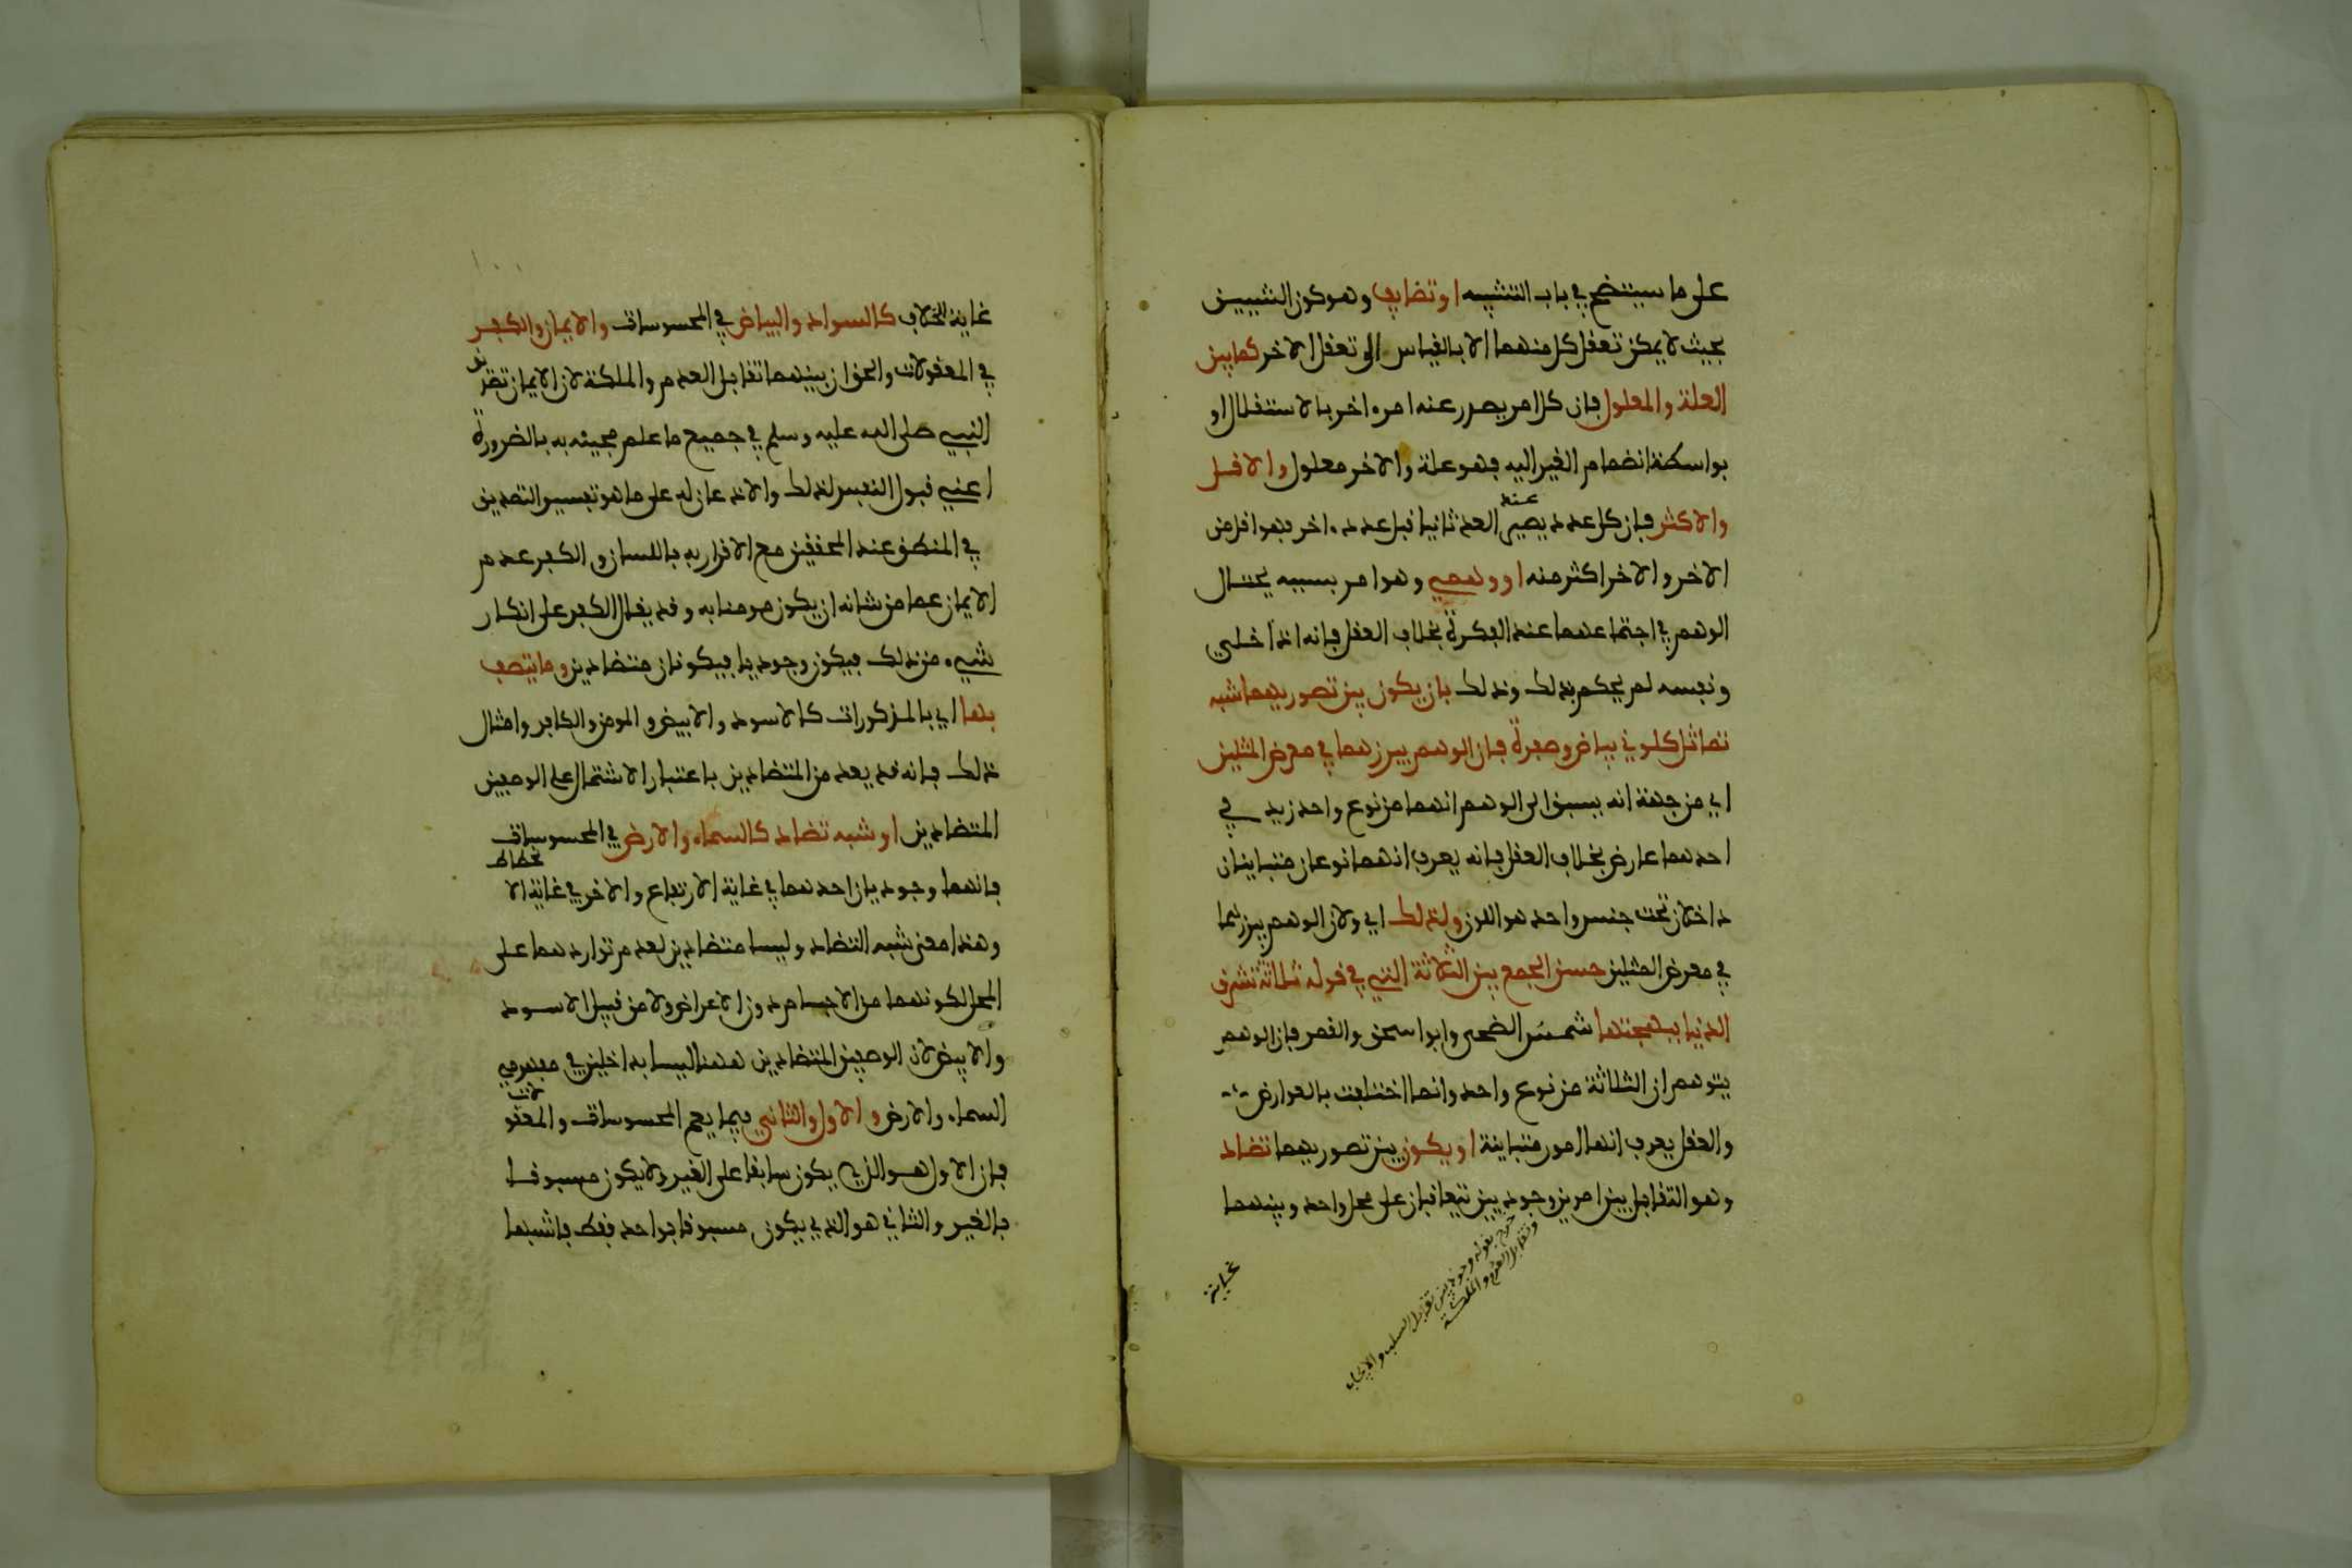 على ما سيتضح في باب التشبيه او تضايف وهو كون الشيين
بحيث لا يمكن تعقل كل منهما الا بالقياس الى تعقل الاخر كما بين
العلة والمعلول فان كل امر يصدر عنه امر اخر بالاستقلال او
بواسطة انضمام الغير اليه فهو علة والاخر معلول والاقل
والاكثر فان كل عدد يصير عند العد ثانيا قبل عدد اخر فهو اقل من
الاخر والاخر اكثر منه او وهمي وهو امر بسببه يحتال
الوهم في اجتماعهما عند الفكرة بخلاف العقل فانه اذا خلي
ونفسه لم يحكم بذلك وذلك بان يكون بين تصوريهما شبه
تماثل كلوني بياض وصفرة فان الوهم يبرزهما في معرض المثلين
اي من جهة انه يسبق الى الوهم انهما من نوع واحد زيد في
احدهما عارض بخلاف العقل فانه يعرف انهما نوعان متباينان
داخلان تحت جنس واحد هو اللون ولذلك اي ولان الوهم يبرزهما
في معرض المثلين حسن الجمع بين الثلاثة التي في قوله ثلاثة تشرق
الدنيا ببهجتها شمس الضحى وابو اسحق والقمر فان الوهم
يتوهم ان الثلاثة من نوع واحد وانما اختلفت بالعوارض
والعقل يعرف انها امور متباينة او يكون بين تصوريهما تضاد
وهو التقابل بين امرين وجوديين يتعاقبان على محل واحد وبينهما
خرج بقوله وجوديين تقابل السلب والايجاب
وتقابل العدم والملكة
غاية
غاية الخلاف كالسواد والبياض في المحسوسات والايمان والكفر
في المعقولات والحق ان بينهما تقابل العدم والملكة لان الايمان تصديق
النبي صلى الله عليه وسلم في جميع ما علم مجيئه به بالضرورة
اعني قبول النفس لذلك والاذعان له على ما هو تفسير التصديق
في المنطق عند المحققين مع الاقرار به باللسان والكفر عدم
الايمان عما من شانه ان يكون مومنا به وقد يقال الكفر على انكار
شيء من ذلك فيكون وجوديا فيكونان متضادين وما يتصف
بها اي بالمذكورات كالاسود والابيض والمومن والكافر وامثال
ذلك فانه قد يعد من المتضادين باعتبار الاشتمال على الوصفين
المتضادين او شبه تضاد كالسماء والارض في المحسوسات
فانهما وجوديان احدهما في غاية الارتفاع والاخر في غاية الانحطاط
وهذا معنى شبه التضاد وليسا متضادين لعدم تواردهما على
المحل لكونهما من الاجسام دون الاعراض ولا من قبيل الاسود
والابيض لان الوصفين المتضادين ههنا ليسا بداخلين في مفهومي
السماء والارض والاول والثاني فيما يعم المحسوسات والمعقولات
فان الاول هو الذي يكون سابقا على الغير ولا يكون مسبوقا
بالغير والثاني هو الذي يكون مسبوقا بواحد فقط فاشبها